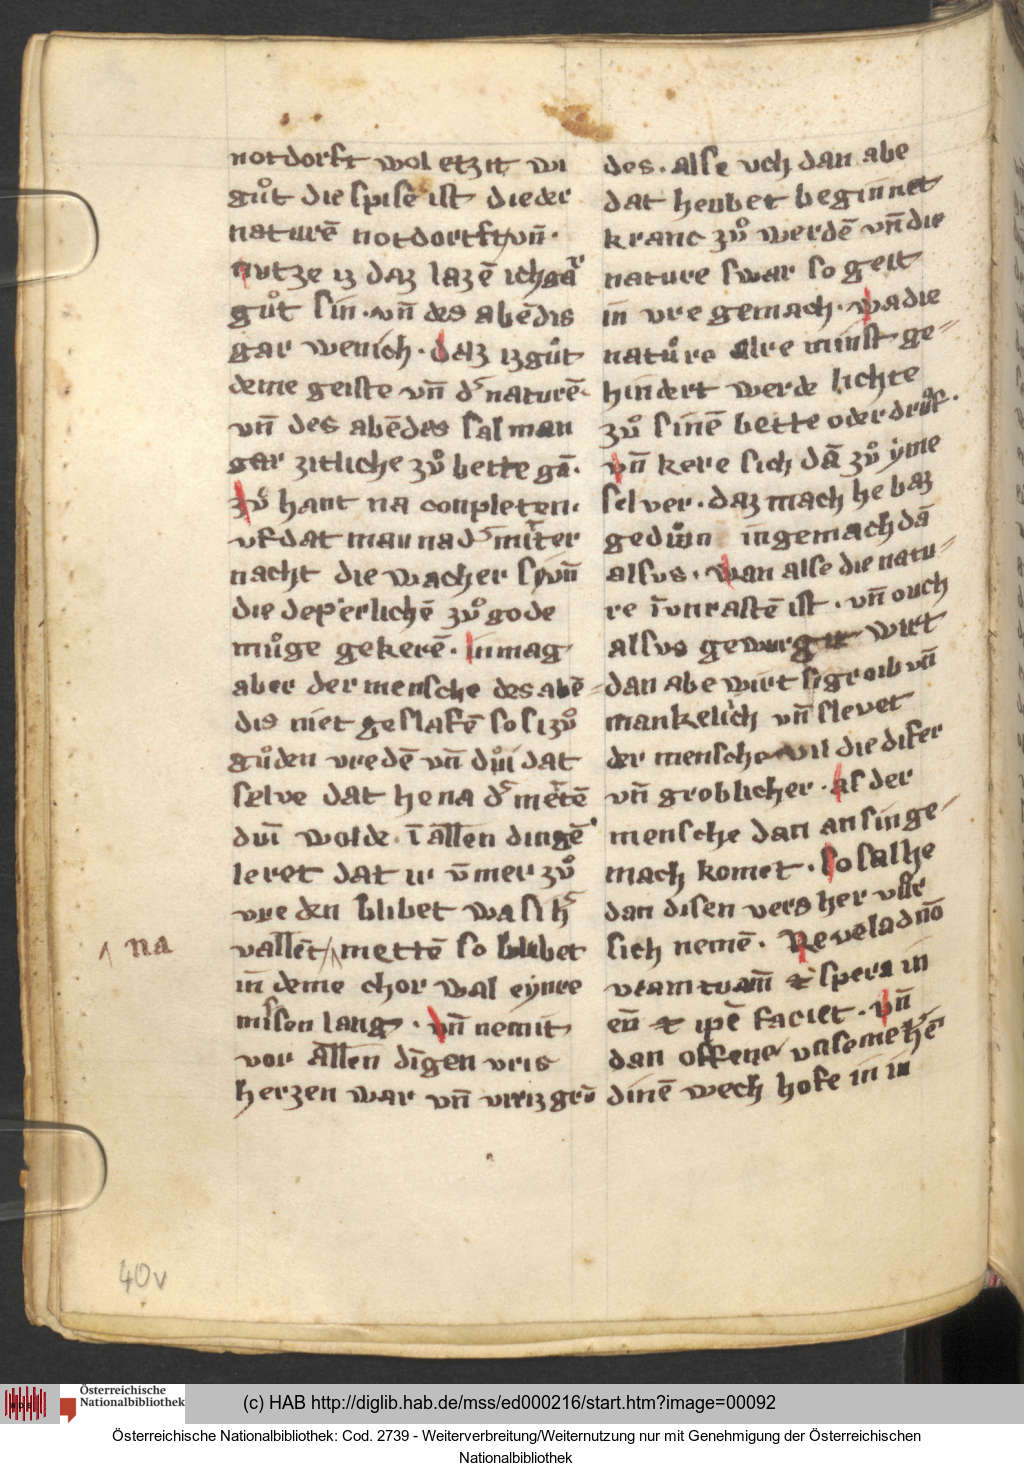 notdorft wol etzit wi
gůt die spise ist die der
naturē notdortft vn̄ ·
nutze iz daz lazē ich gar
gůt sin · vn̄ des abēdis
gar wenich · daz iz gůt
deme geiste vn̄ d' naturē
vn̄ des abēdes sal man
gar zitliche zů bette gā ·
zů hant na conpleten ·
vf dat man na d' mitter
nacht die wacher si vn̄
die dep'erlichē zů gode
můge gekerē · in mag
aber der mensche des abē
dis niet geslafē so si zů
gůden vredē vn̄ důi dat
selve dat he na d' mettē
dui wolde · ī allen dingē
leret dat ir v̄mer zů
vreden blibet wa si h'
vallēt / mettē so blibet
na
in deme chor wal eynre
missen lang · vn̄ nemit
vor allen dīgen vris
herzen war vn̄ vwiz grů
des · alse vch dan abe
dat heubet beginnet
kranc zů werdē vn̄ die
nature swar so geit
in vre gemach · wa die
natůre alre minst ge-
hindert werde lichte
zů sinē bette oder drůf ·
vn̄ kere sich dā zů yme
selver · daz mach he baz
gedůn in gemach dā
alsus · wan alse die natu-
re in vnrastē ist · vn̄ ouch
alsus gewurgit wirt
dan abe wirt si groib vn̄
mankelich vn̄ slevet
der mensche vil die difer
vn̄ groblicher · als der
mensche dan an sin ge-
mach komet · so sal he
dan disen vers her vůr
sich nemē · Revela dn̄o
viam tuam̄ et spera in
en̄ et ipē faciet · vn̄
dan offene vnsemehē
dinē wech hofe in in
40v
Österreichische
Nationalbibliothek
(c) HAB http://diglib.hab.de/mss/ed000216/start.htm?image=00092
Österreichische Nationalbibliothek: Cod. 2739 - Weiterverbreitung/Weiternutzung nur mit Genehmigung der Österreichischen
Nationalbibliothek